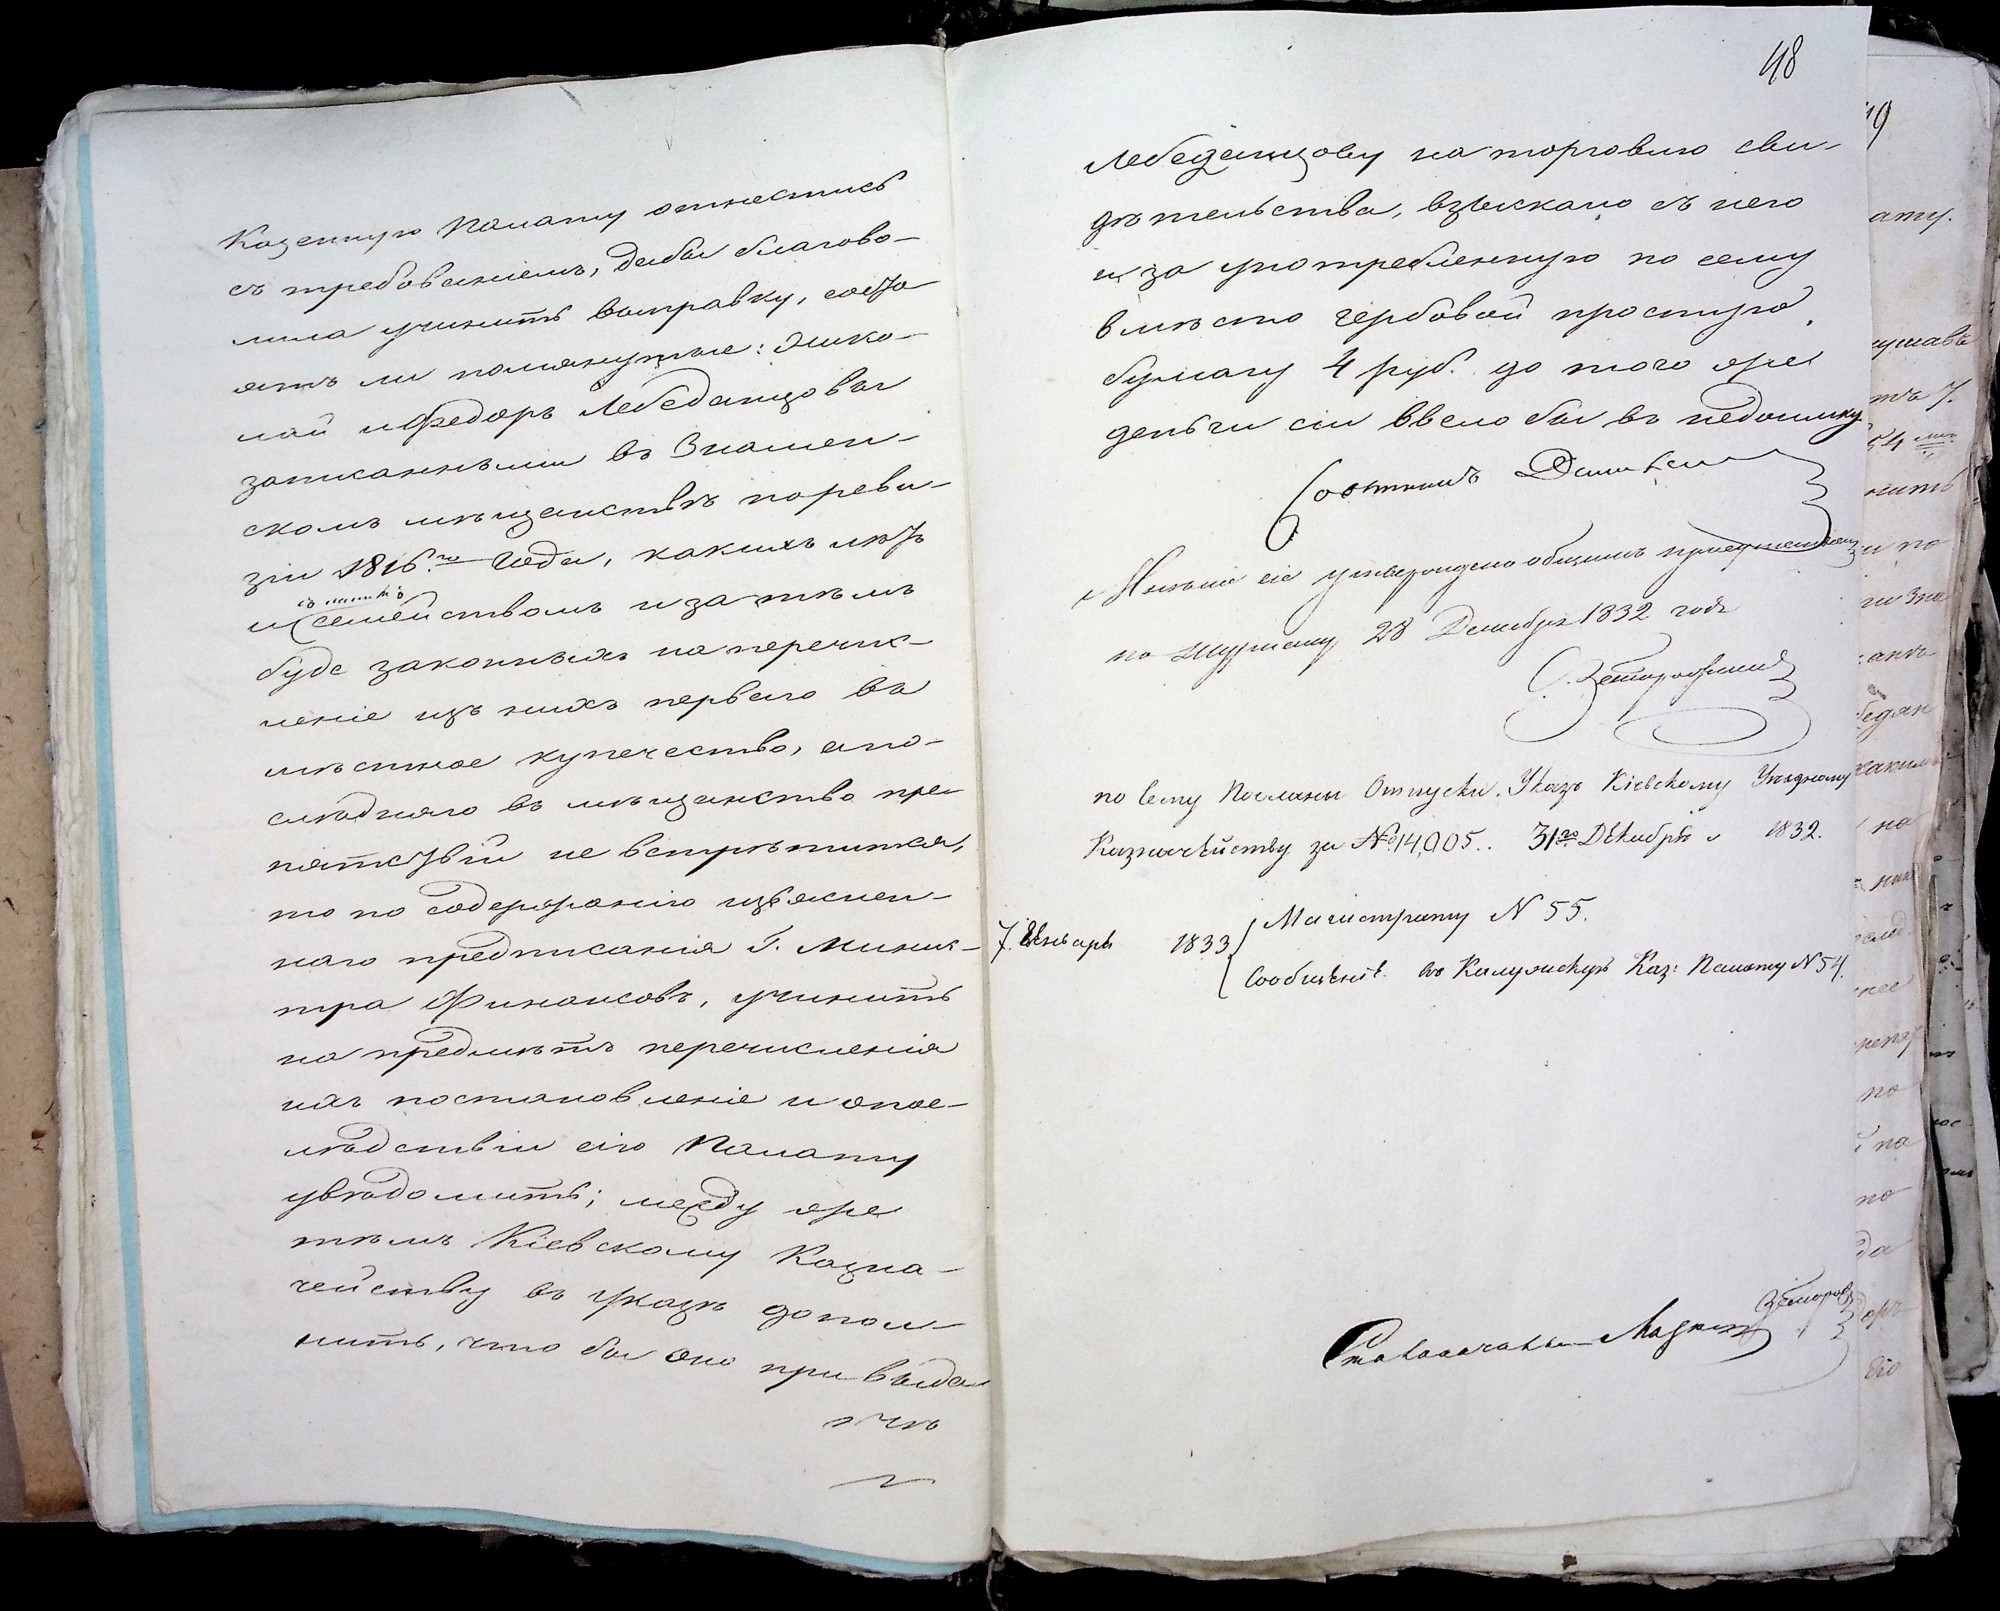 Казенную Палату отнестись
съ требованіемъ, дабы благово-
лила учинить выправку, состо
ятъ ли помянутые: Эмико-
лай и Федоръ Лебеданцовы
записанными въ Знамен-
скомъ мѣщанствѣ по реви-
зіи 1816.го года, какихъ лѣтъ
съ какимъ
и семействомъ и затѣмъ
буде законныхъ на перечис-
леніе изъ нихъ перваго въ
мѣстное купечество, а по-
слѣдняго въ мѣщанство пре
пятствій не встрѣтится,
то по содержанію изъяснен-
наго предписанія Г. Минис-
тра Финансовъ, учинить
на предмѣтъ перечисленія
ихъ постановленіе и о пос-
лѣдствіи сію Палату
увѣдомить; между же
тѣмъ Кіевскому Казна-
чейству въ указѣ допол-
нить, что бы оно при выда
чѣ
48
Лебеданцову на торговлю сви-
дѣтельства, взыскало съ него
и за употребленную по сему
вмѣсто гербовой простую
бумагу 4 руб. до того же
деньги сіи ввело бы въ недоимку
Совѣтникъ
Мнѣніе сіе утверждено общимъ присутствіемъ
по журналу 28 Декабря 1832 года
по сему Посланы Отпуски. Указъ Кіевскому Уѣздному
Казначѣйству за №14,005.. 31го Декабря 1832.
7. Январь 1833
Магистрату N 55.
Сообщеніе въ Калужскую Каз: Палату N 54.
Столоначальн
49